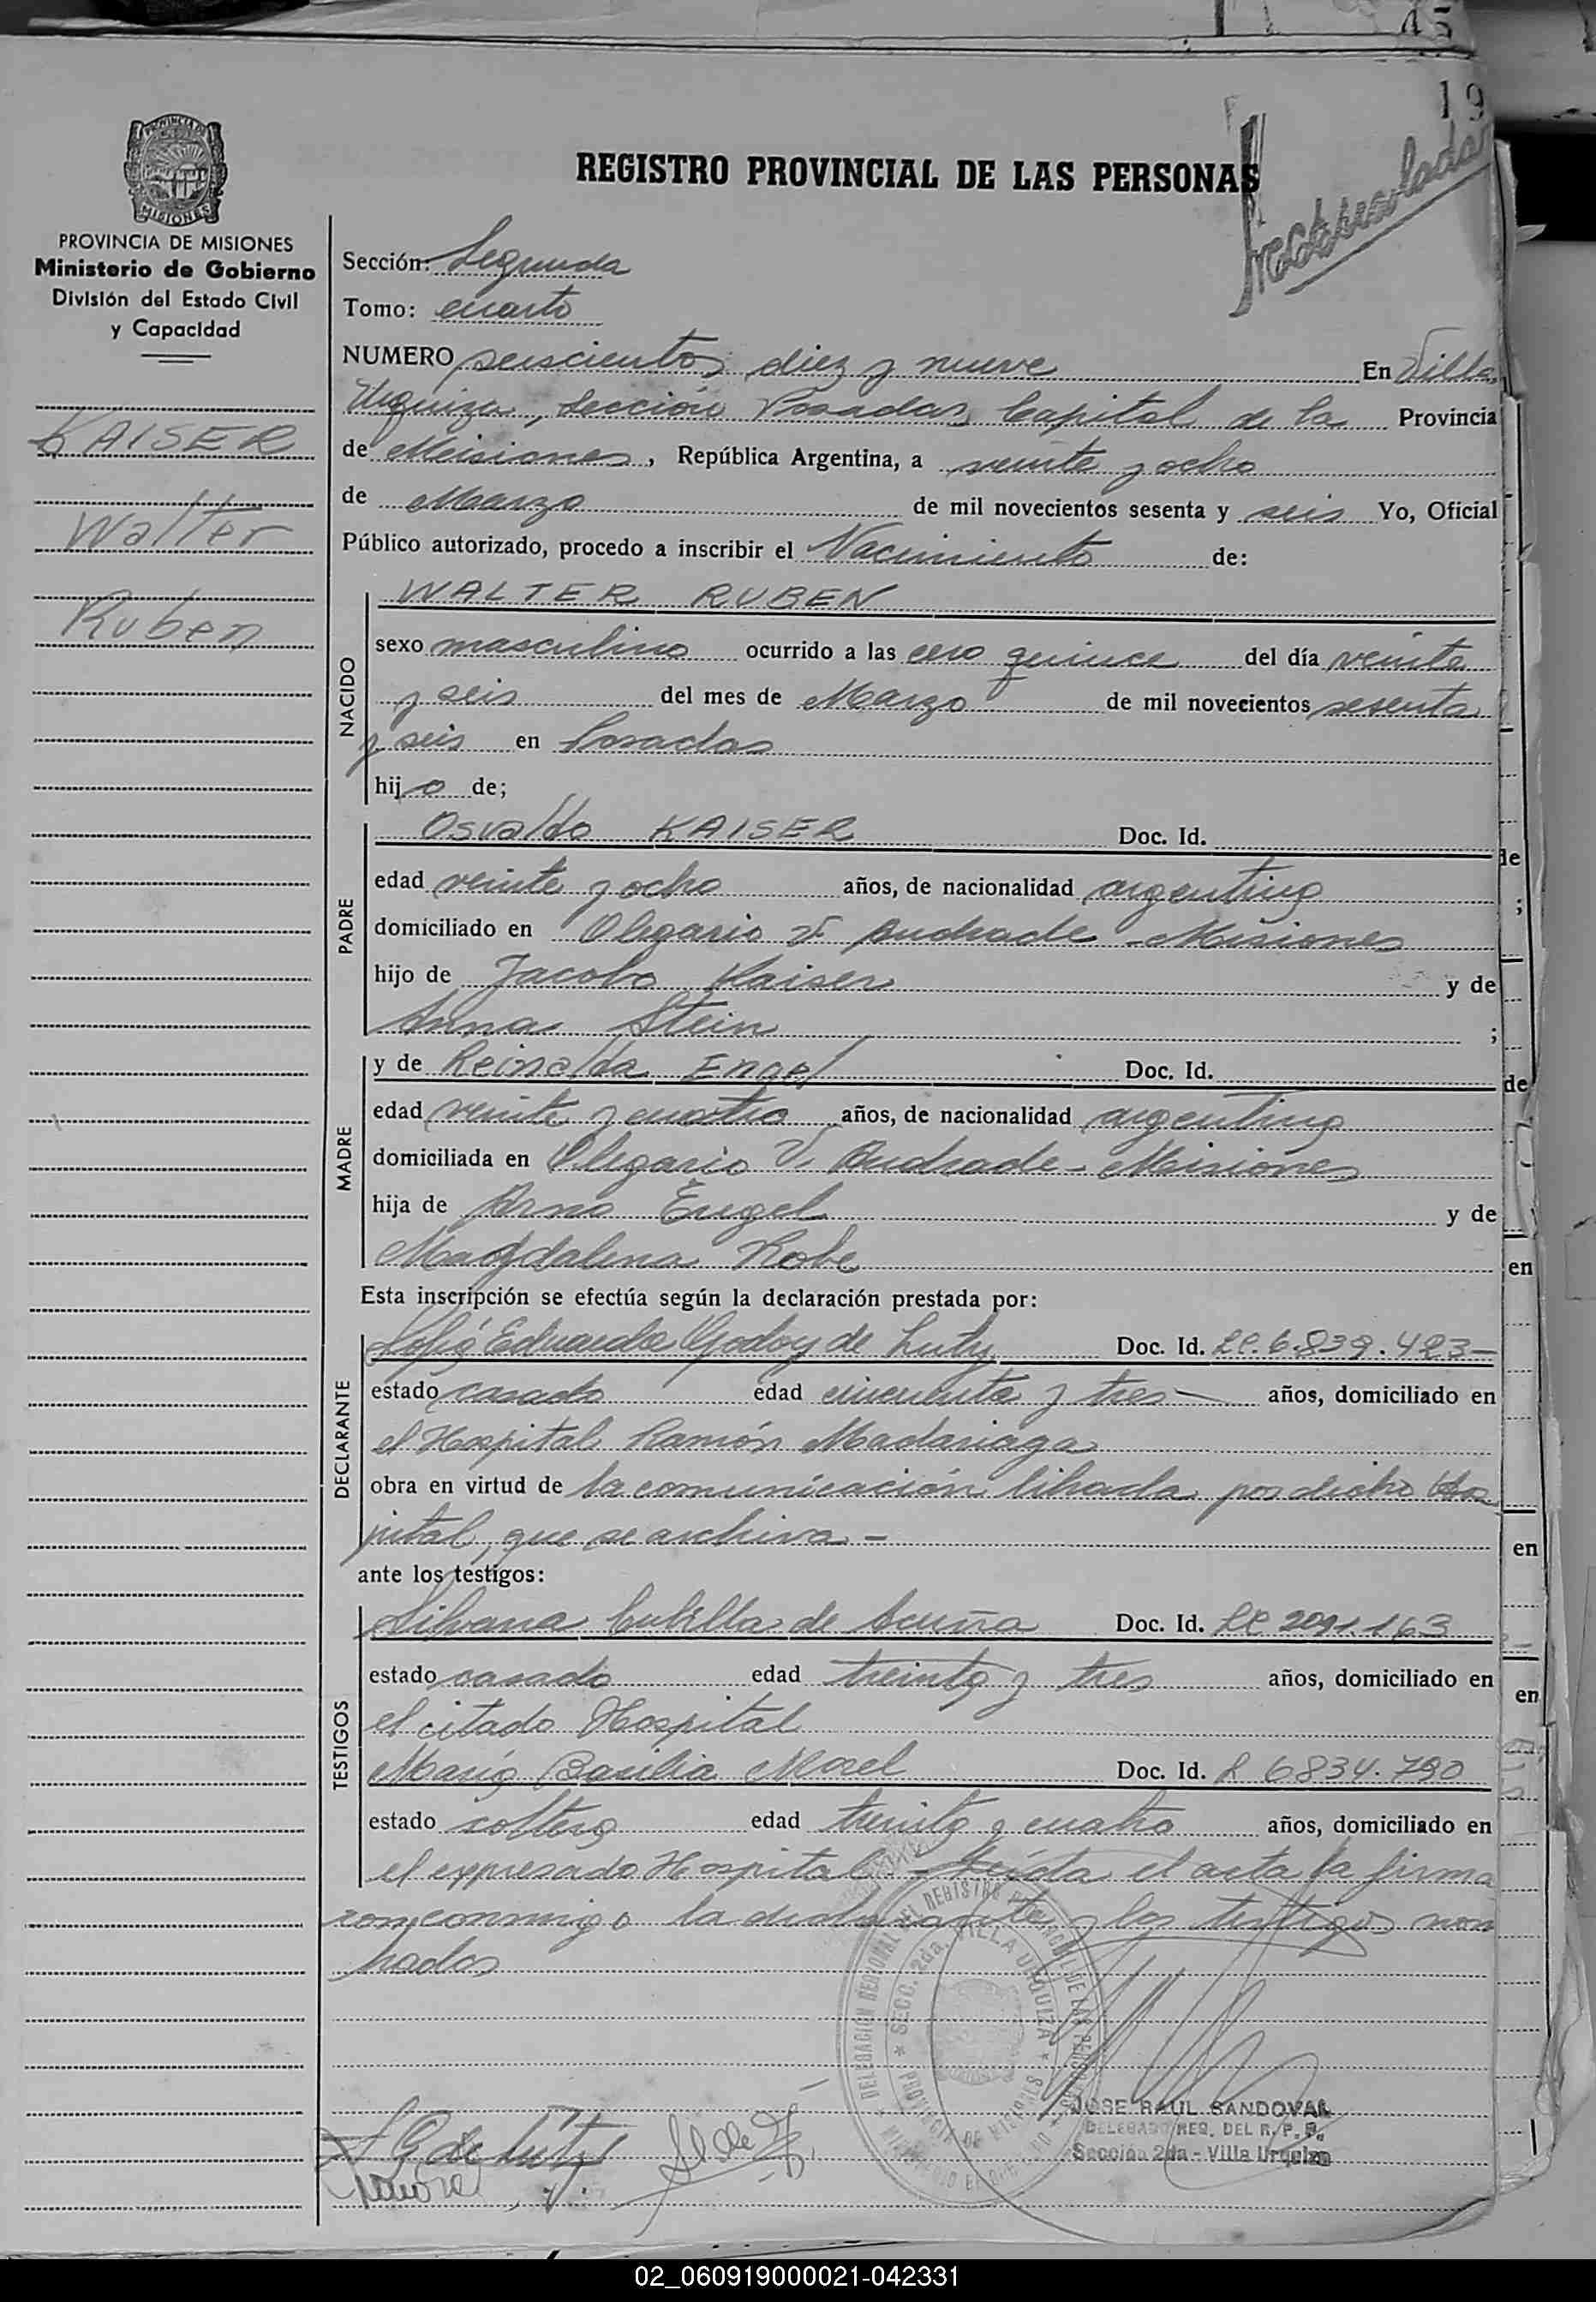 45
19
PROVINCIA DE
MISIONES
PROVINCIA DE MISIONES
Ministerio de Gobierno
División del Estado Civil
y Capacidad
KAISER
Walter
Ruben
REGISTRO PROVINCIAL DE LAS PERSONAS
Matriculado
Sección: Segunda
Tomo: cuarto
NUMERO seiscientos diez y nueve En Villa
Urquiza, Sección Posadas, Capital de la Provincia
de Misiones, República Argentina, a veinte y ocho
de Marzo de mil novecientos sesenta y seis Yo, Oficial
Público autorizado, procedo a inscribir el Nacimiento de:
NACIDO
WALTER RUBEN
sexo masculino ocurrido a las cero quince del día veinte
y seis del mes de Marzo de mil novecientos sesenta
y seis en Posadas
hijo de;
PADRE
Osvaldo KAISER Doc. Id.
edad veinte y ocho años, de nacionalidad argentina
domiciliado en Olegario V. Andrade - Misiones
hijo de Jacobo Kaiser y de
Anna Stein ;
MADRE
y de Reinalda Engel Doc. Id.
edad veinte y cuatro años, de nacionalidad argentina
domiciliada en Olegario V. Andrade - Misiones
hija de Arno Engel y de
Magdalena Kobe
Esta inscripción se efectúa según la declaración prestada por:
DECLARANTE
Sofía Eduarda Godoy de Luty Doc. Id. LC. 6.839.423-
estado casada edad cincuenta y tres - años, domiciliado en
el Hospital Ramón Madariaga
obra en virtud de la comunicación librada por dicho Hos
pital, que se archiva -
ante los testigos:
TESTIGOS
Silvana Cubilla de Acuña Doc. Id. LC 2091163
estado casado edad treinta y tres años, domiciliado en
el citado Hospital
María Basilia Morel Doc. Id. L 6834.790
estado soltera edad treinta y cuatro años, domiciliado en
el expresado Hospital. - Leída el acta la firma
ron conmigo la declarante y los testigos nom
brados
DELEGACIÓN REGIONAL DEL REGISTRO PROVINCIAL DE LAS PERSONAS
SECC. 2da. VILLA URQUIZA
PROVINCIA DE MISIONES
JOSE RAUL SANDOVAL
DELEGADO REG. DEL R. P. P.
Sección 2da - Villa Urquiza
S G de Luty
02_060919000021-042331